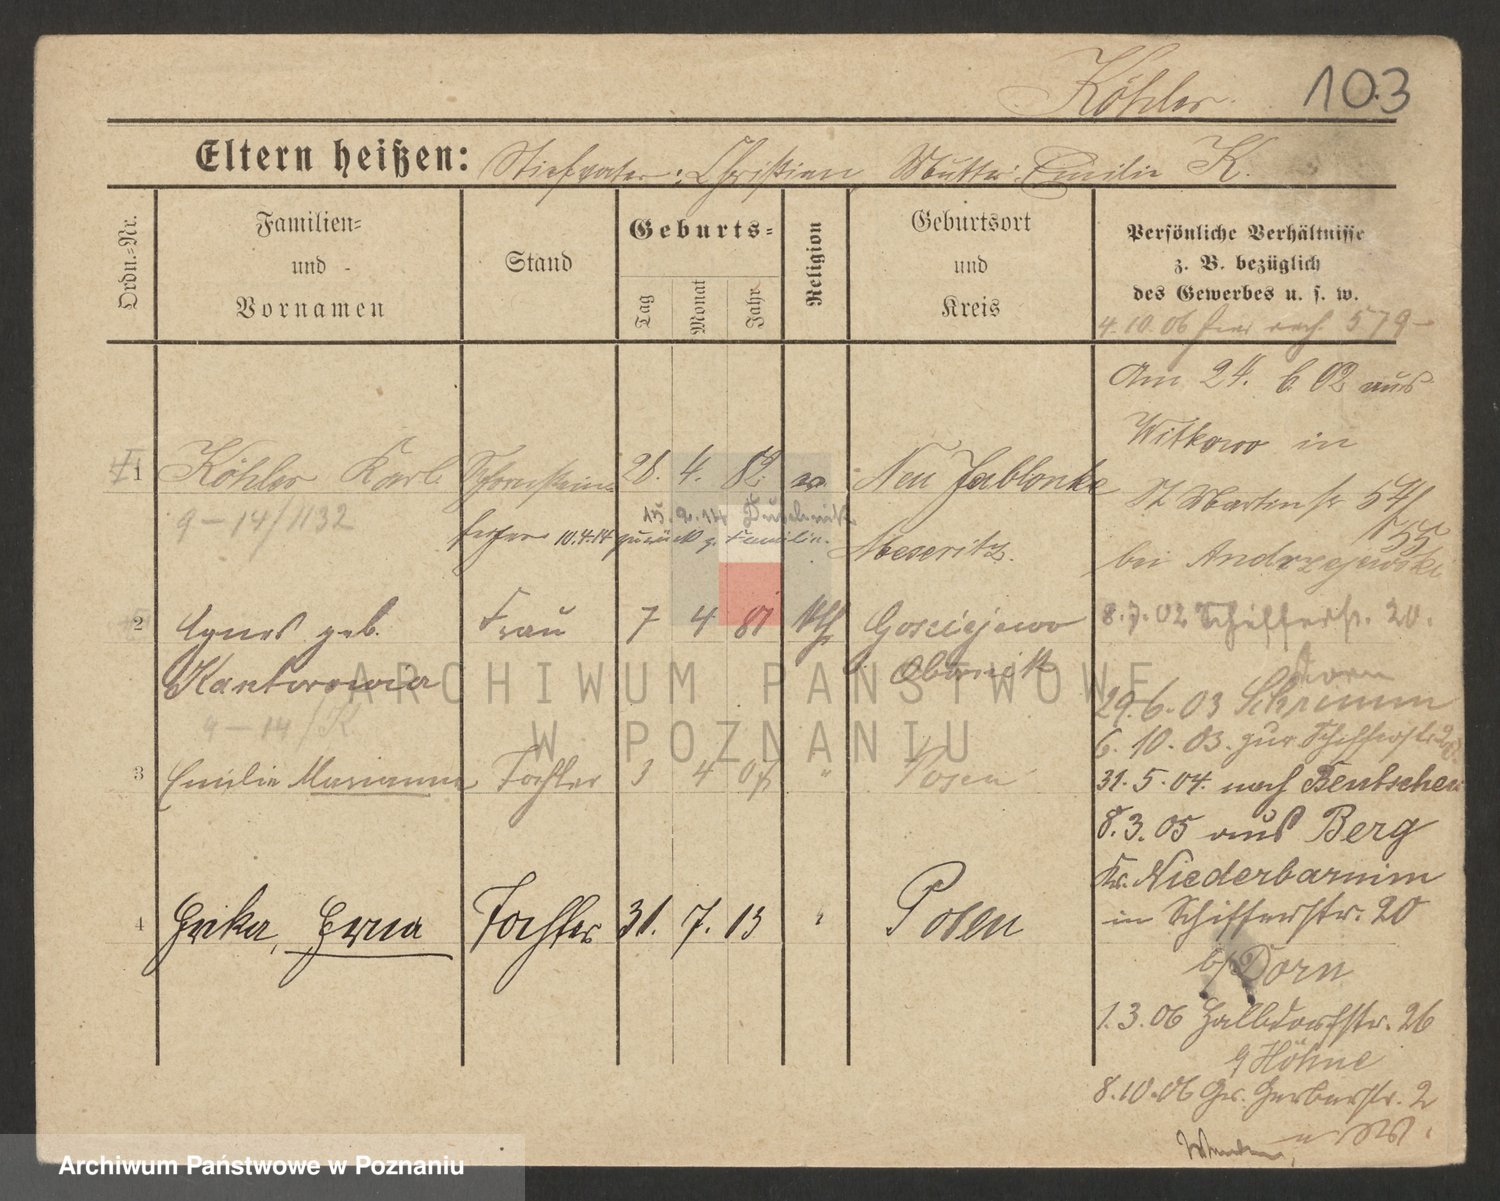 Köhler. 103
Eltern heißen: Stiefvater: Christian Mutter: Emilie K.
Ordn.-Nr.
Familien-
und
Vornamen
Stand
Geburts-
Tag
Monat
Jahr
Religion
Geburtsort
und
Kreis
Persönliche Verhältnisse
z. B. bezüglich
des Gewerbes u. s. w.
4.10.06 579
Am 24. 6. 02 aus
Witkowo in
1 Köhler Karl Schornstein- 28. 4. 82. ev. Neu Jablonke
St Martinstr 54/
55
9-14/1132
15.9.14 Duschnik
feger 10.4.14 zurück z. Familie. Meseritz.
bei Andrzejewski
2 Agnes geb. Frau 7 4 81 kth Gosciejewo
8.7.02 Schifferstr. 20.
Kantorowicz Obornik
Dorn
29.6.03 Schrimm
9-14/K
6.10.03. zur Schifferstr 20
3 Emilie Marianna Tochter 3 4 04 " Posen
31.5.04. nach Bentschen
8.3.05 aus Berg
Kr. Niederbarnim
4 Erika, Erna Tochter 31. 7. 13 " Posen
in Schifferstr. 20
b/ Dorn
1.3.06 Halbdorfstr. 26
b/ Höhne
8.10.06 Gr. Gerberstr. 2
ARCHIWUM PAŃSTWOWE
W POZNANIU
Archiwum Państwowe w Poznaniu